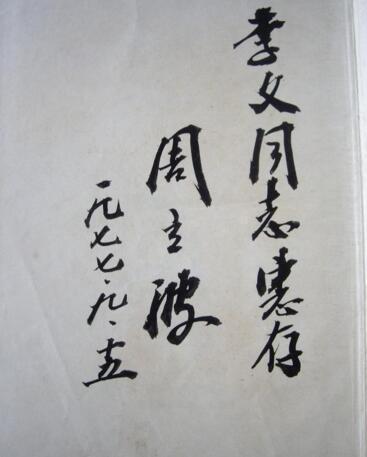 李文同志惠存
周立波
一九七七·九·十五